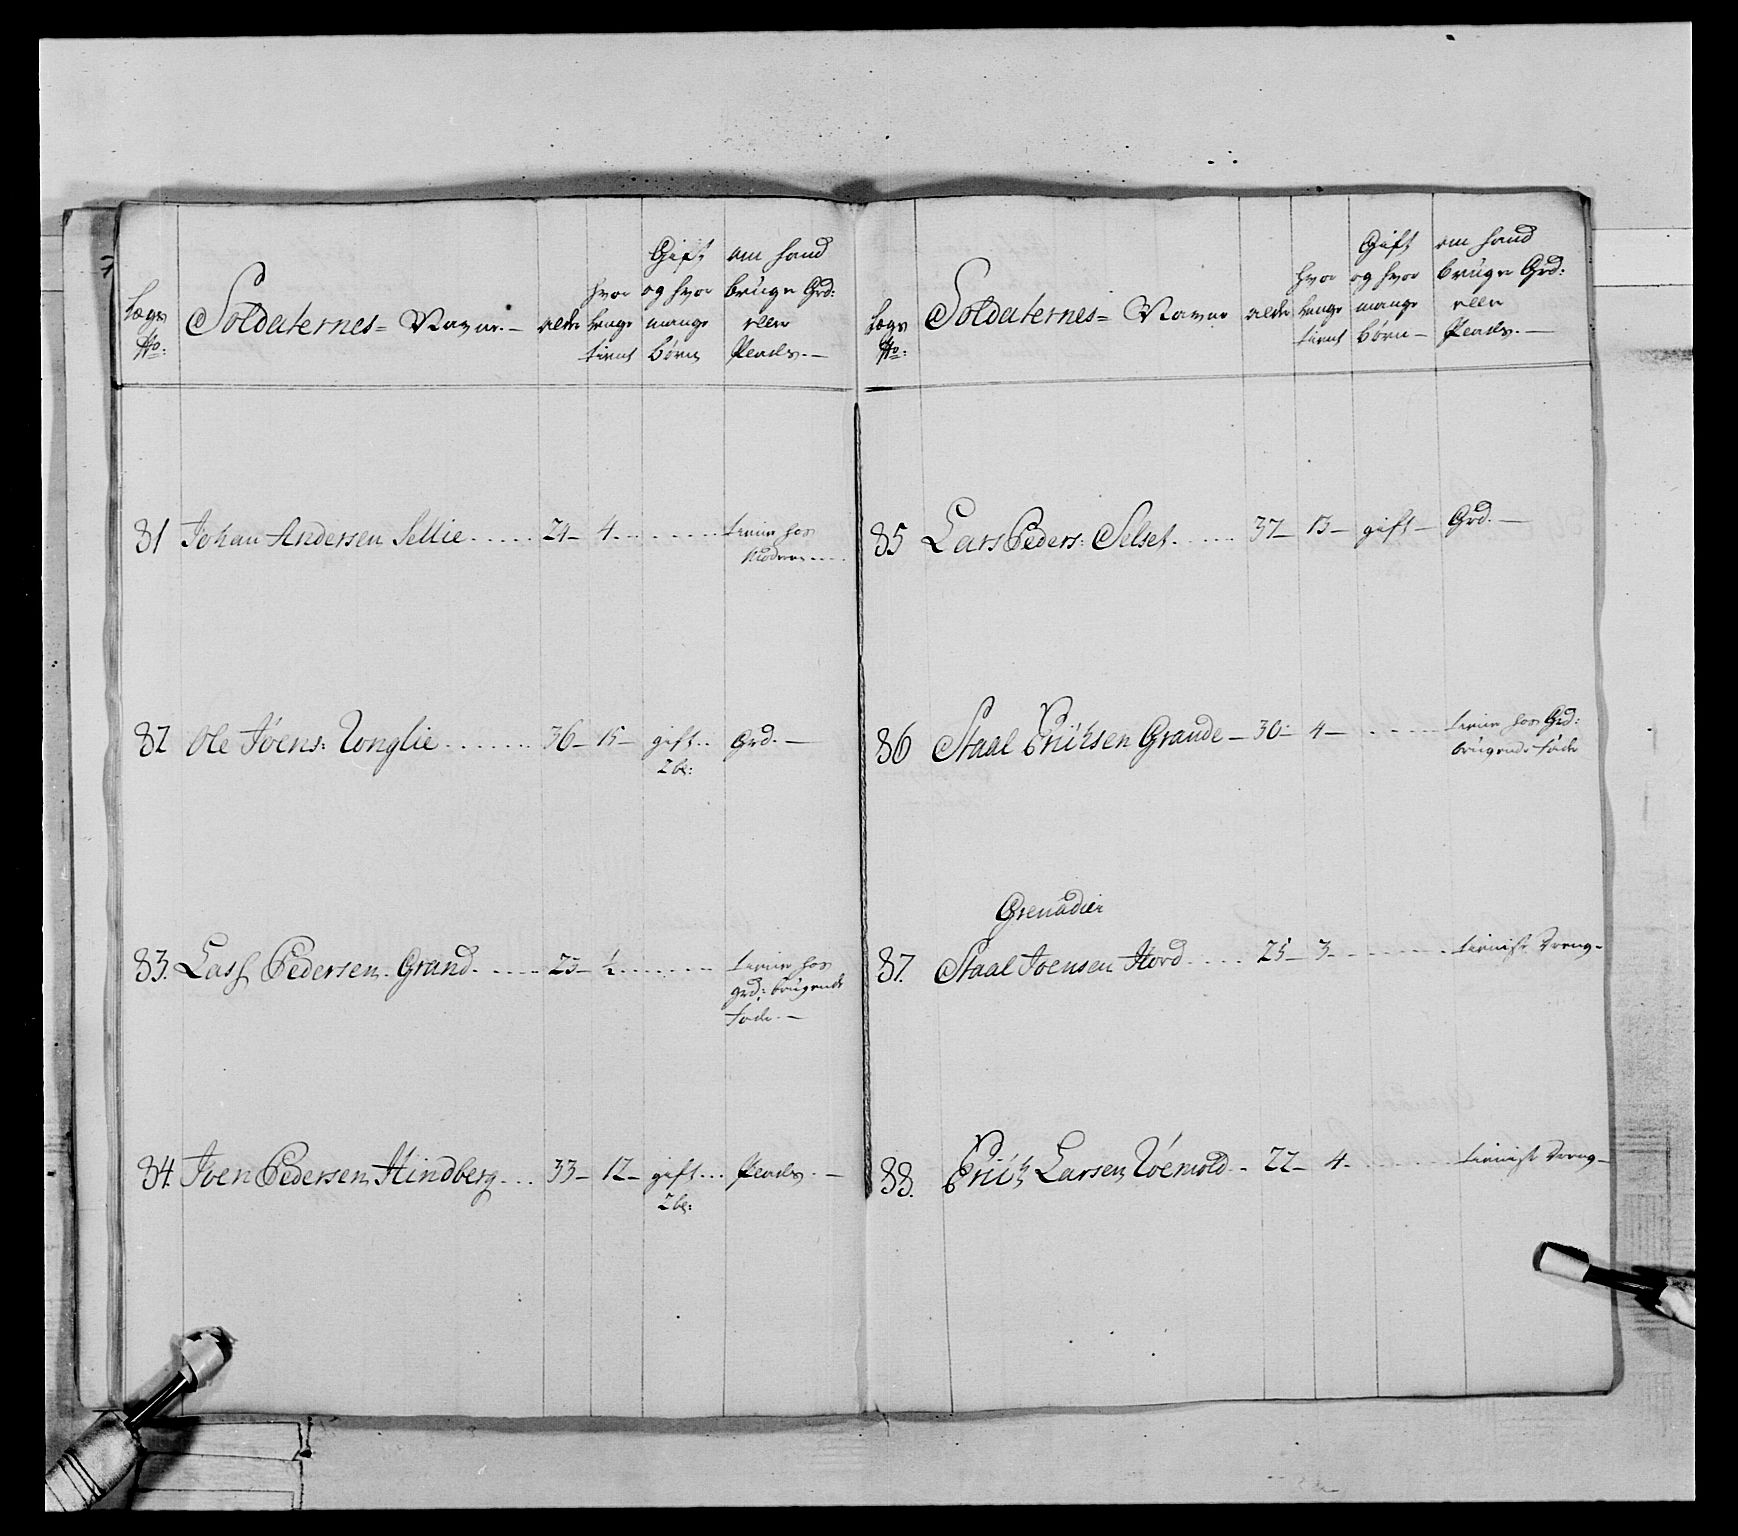 Lægs No: Soldaternes= Navne.— alder hvor længe tient Gift og hvor mange børn om hand bruger Grd: eller Plads.—
81 Johan Andersen Sellie...... 24— 4......... tiener hos
Moderen....
82 Ole Joens: Tonglie....... 36— 15— gift.. Grd.—
2 bl:
83. Lass Pedersen Grand...... 23— ½....... tiener hos
grd: brugende
fader.—
84. Joen Pedersen Hindberg... 33— 12— gift... Plads.—
2 bl:
Lægs No: Soldaternes= Navne alder hvor længe tient Gift og hvor mange børn— om hand bruger Grd: eller Plads.—
85 Lars Peders: Selset...... 37— 13— gift— Grd.—
86 Staal Erichsen Grande— 30— 4—...... tiener hos Grd:
brugende fader
Grenadier
87. Staal Joensen Hord..... 25— 3........ tienist dreng—
88. Erich Larsen — 22— 4........ tienist dreng—